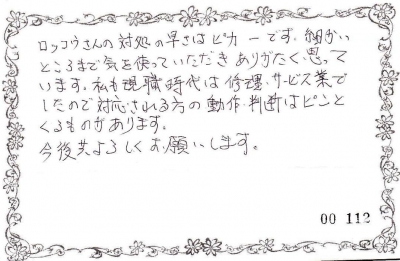 ロッコウさんの対処の早さはピカ一です。細かい
ところまで気を使っていただきありがたく思って
います。私も現職時代は修理、サービス業で
したので対応される方の動作、判断はピンと
くるものがあります。
今後共よろしくお願いします。
00 112